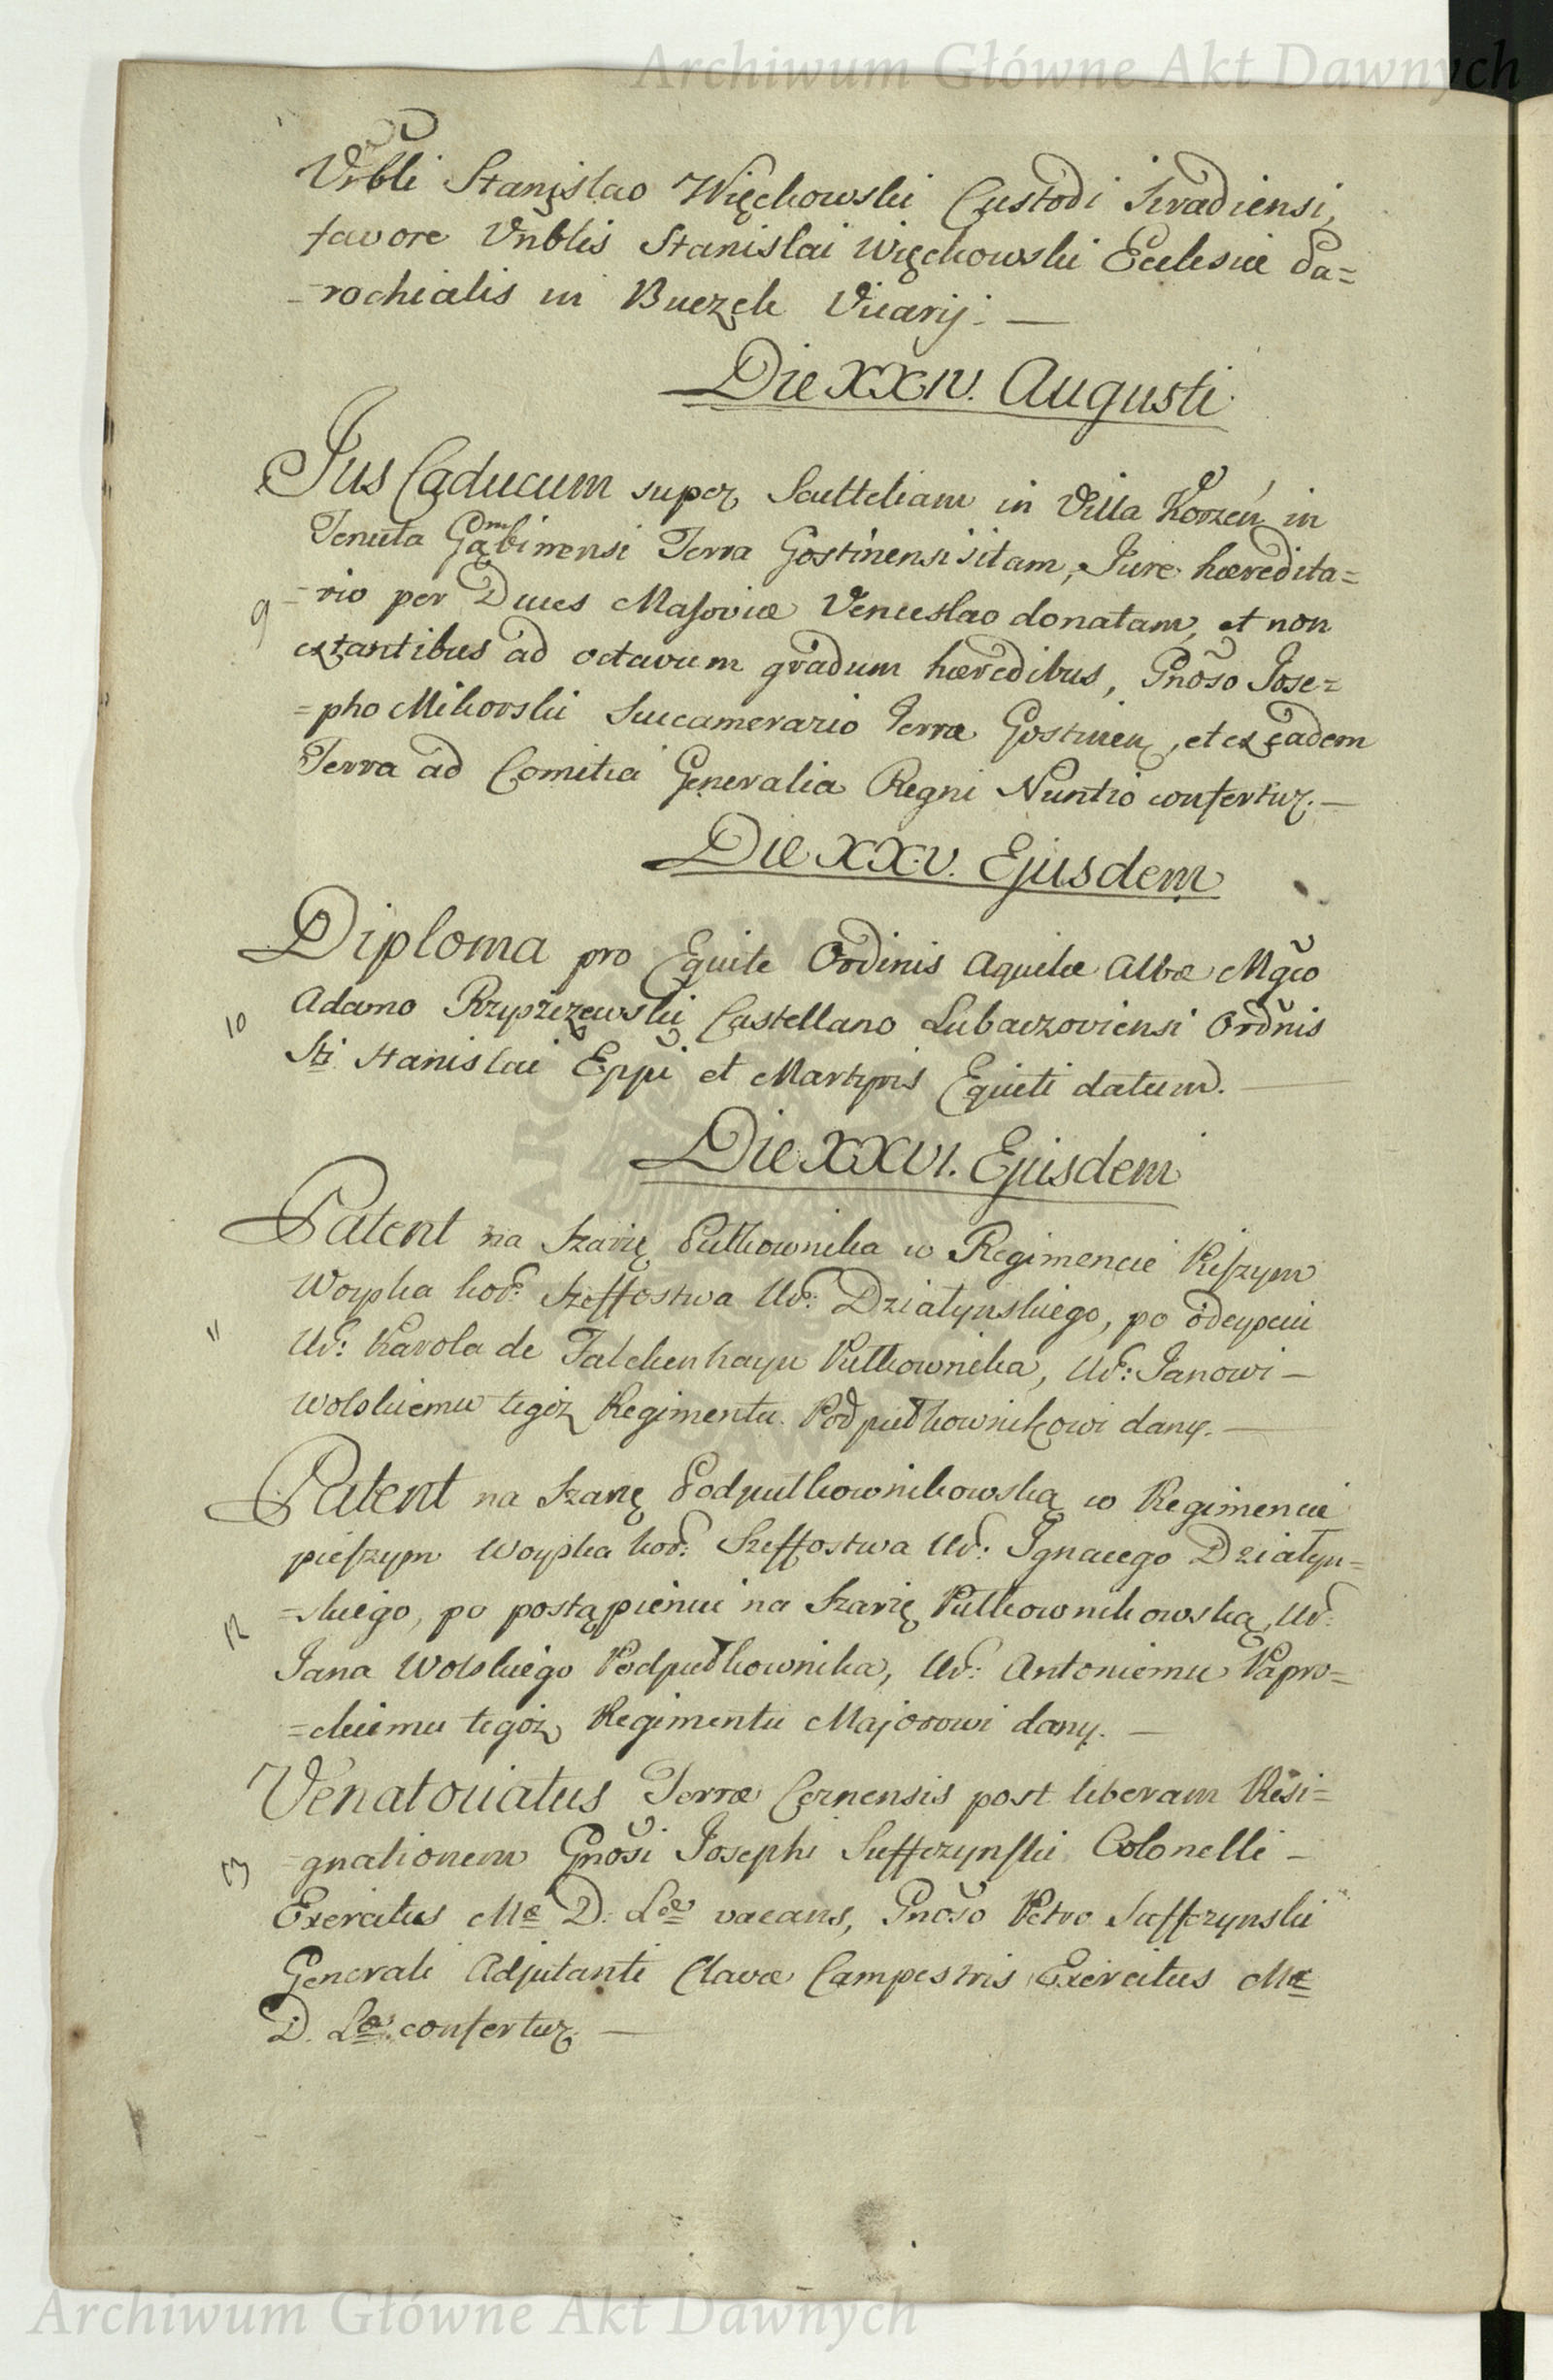 Archiwum Główne Akt Dawnych
Vrbli Stanislao Więckowski Custodi Siradiensi,
favore Vnblis Stanislai Więckowski Ecclesiæ Pa=
=rochialis in Buczek Vicarij. —
Die XXIV. Augusti
Jus Caducum super Scultetiam in Villa Korzeń in
Tenuta Gąbinensi Terra Gostinensi sitam, Jure hæredita=
9 =rio per Duces Masoviæ Venceslao donatam, et non
extantibus ad octavum gradum hæredibus, Gnõso Jose=
=pho Mikorski Succamerario Terræ Gostinen, et ex eadem
Terra ad Comitia Generalia Regni Nuntio confertur. —
Die XXV. Ejusdem
Diploma pro Equite Ordinis Aquilæ Albæ Mgco
10 Adamo Rzyszczewski Castellano Lubaczoviensi Ordnis
Sti Stanislai Eppi et Martyris Equiti datum. —
Die XXVI. Ejusdem
Patent na Szarżę Pułkownika w Regimencie Pieszym
Woyska kor: Szeffostwa Ur: Działynskiego, po odeyściu
11 Ur: Karola de Falckenhayn Pułkownika, Ur: Janowi —
Wolskiemu tegoż Regimentu Podpułkownikowi dany. —
Patent na Szarżę Podpułkownikowską w Regimencie
pieszym Woyska kor: Szeffostwa Ur: Ignacego Działyn=
12 =skiego, po postąpieniu na Szarżę Pułkownikowską, Ur:
Jana Wolskiego Podpułkownika, Ur: Antoniemu Papro=
=ckiemu tegoż Regimentu Majorowi dany. —
Venatoriatus Terræ Cernensis post liberam Resi=
13 =gnationem Gnõsi Josephi Suffczynski Colonelli —
Exercitus M. D. L. vacans, Gnõso Petro Suffczynski
Generali Adjutanti Clavæ Campestris Exercitus M.
D. L. confertur. —
Archiwum Główne Akt Dawnych